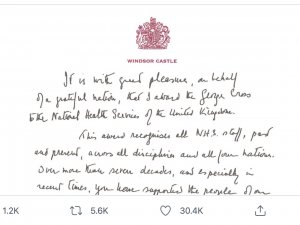 WINDSOR CASTLE
It is with great pleasure, on behalf
of a grateful nation, that I award the George Cross
to the National Health Services of the United Kingdom.
This award recognises all N.H.S. staff, past
and present, across all disciplines and all four nations.
Over more than seven decades, and especially in
recent times, you have supported the people of our
1.2K
5.6K
30.4K